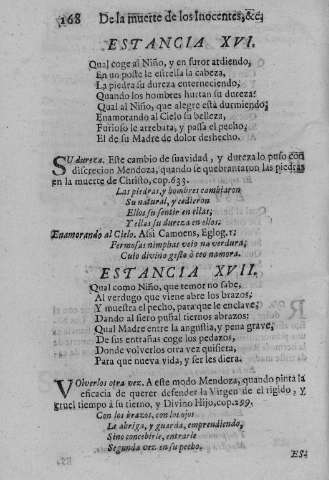 168 De la muerte de los Inocentes, &c.
ESTANCIA XVI.
Qual coge al Niño, y en furor ardiendo,
En un poste le estrella la cabeza,
La piedra su dureza enterneciendo,
Quando los hombres hurtan su dureza:
Qual al Niño, que alegre està durmiendo,
Enamorando al Cielo su belleza,
Furioso le arrebata, y passa el pecho,
El de su Madre de dolor deshecho.
SU dureza. Este cambio de suavidad, y dureza lo puso con
discrecion Mendoza, quando le quebrantaron las piedras
en la muerte de Christo, cop. 633.
Las piedras, y hombres cambiaron
Su natural, y cedieron
Ellos su sentir en ellas,
Y ellas su dureza en ellos.
Enamorando al Cielo. Assi Camoens, Eglog. 1:
Fermosas nimphas veio na verdura;
Cuio divino gesto ò ceo namora.
ESTANCIA XVII.
Qual como Niño, que temor no sabe,
Al verdugo que viene abre los brazos,
Y muestra el pecho, para que le enclave,
Dando al fiero puñal tiernos abrazos:
Qual Madre entre la angustia, y pena grave,
De sus entrañas coge los pedazos,
Donde volverlos otra vez quisiera,
Para que nueva vida, y ser les diera.
VOlverlos otra vez. A este modo Mendoza, quando pinta la
eficacia de querer defender la Virgen de el rigido, y
cruel tiempo à su tierno, y Divino Hijo, cop. 299.
Con los brazos, con los ojos
Le abriga, y guarda, emprendiendo,
Sino concebirle, entrarle
Segunda vez en su pecho.
ES-